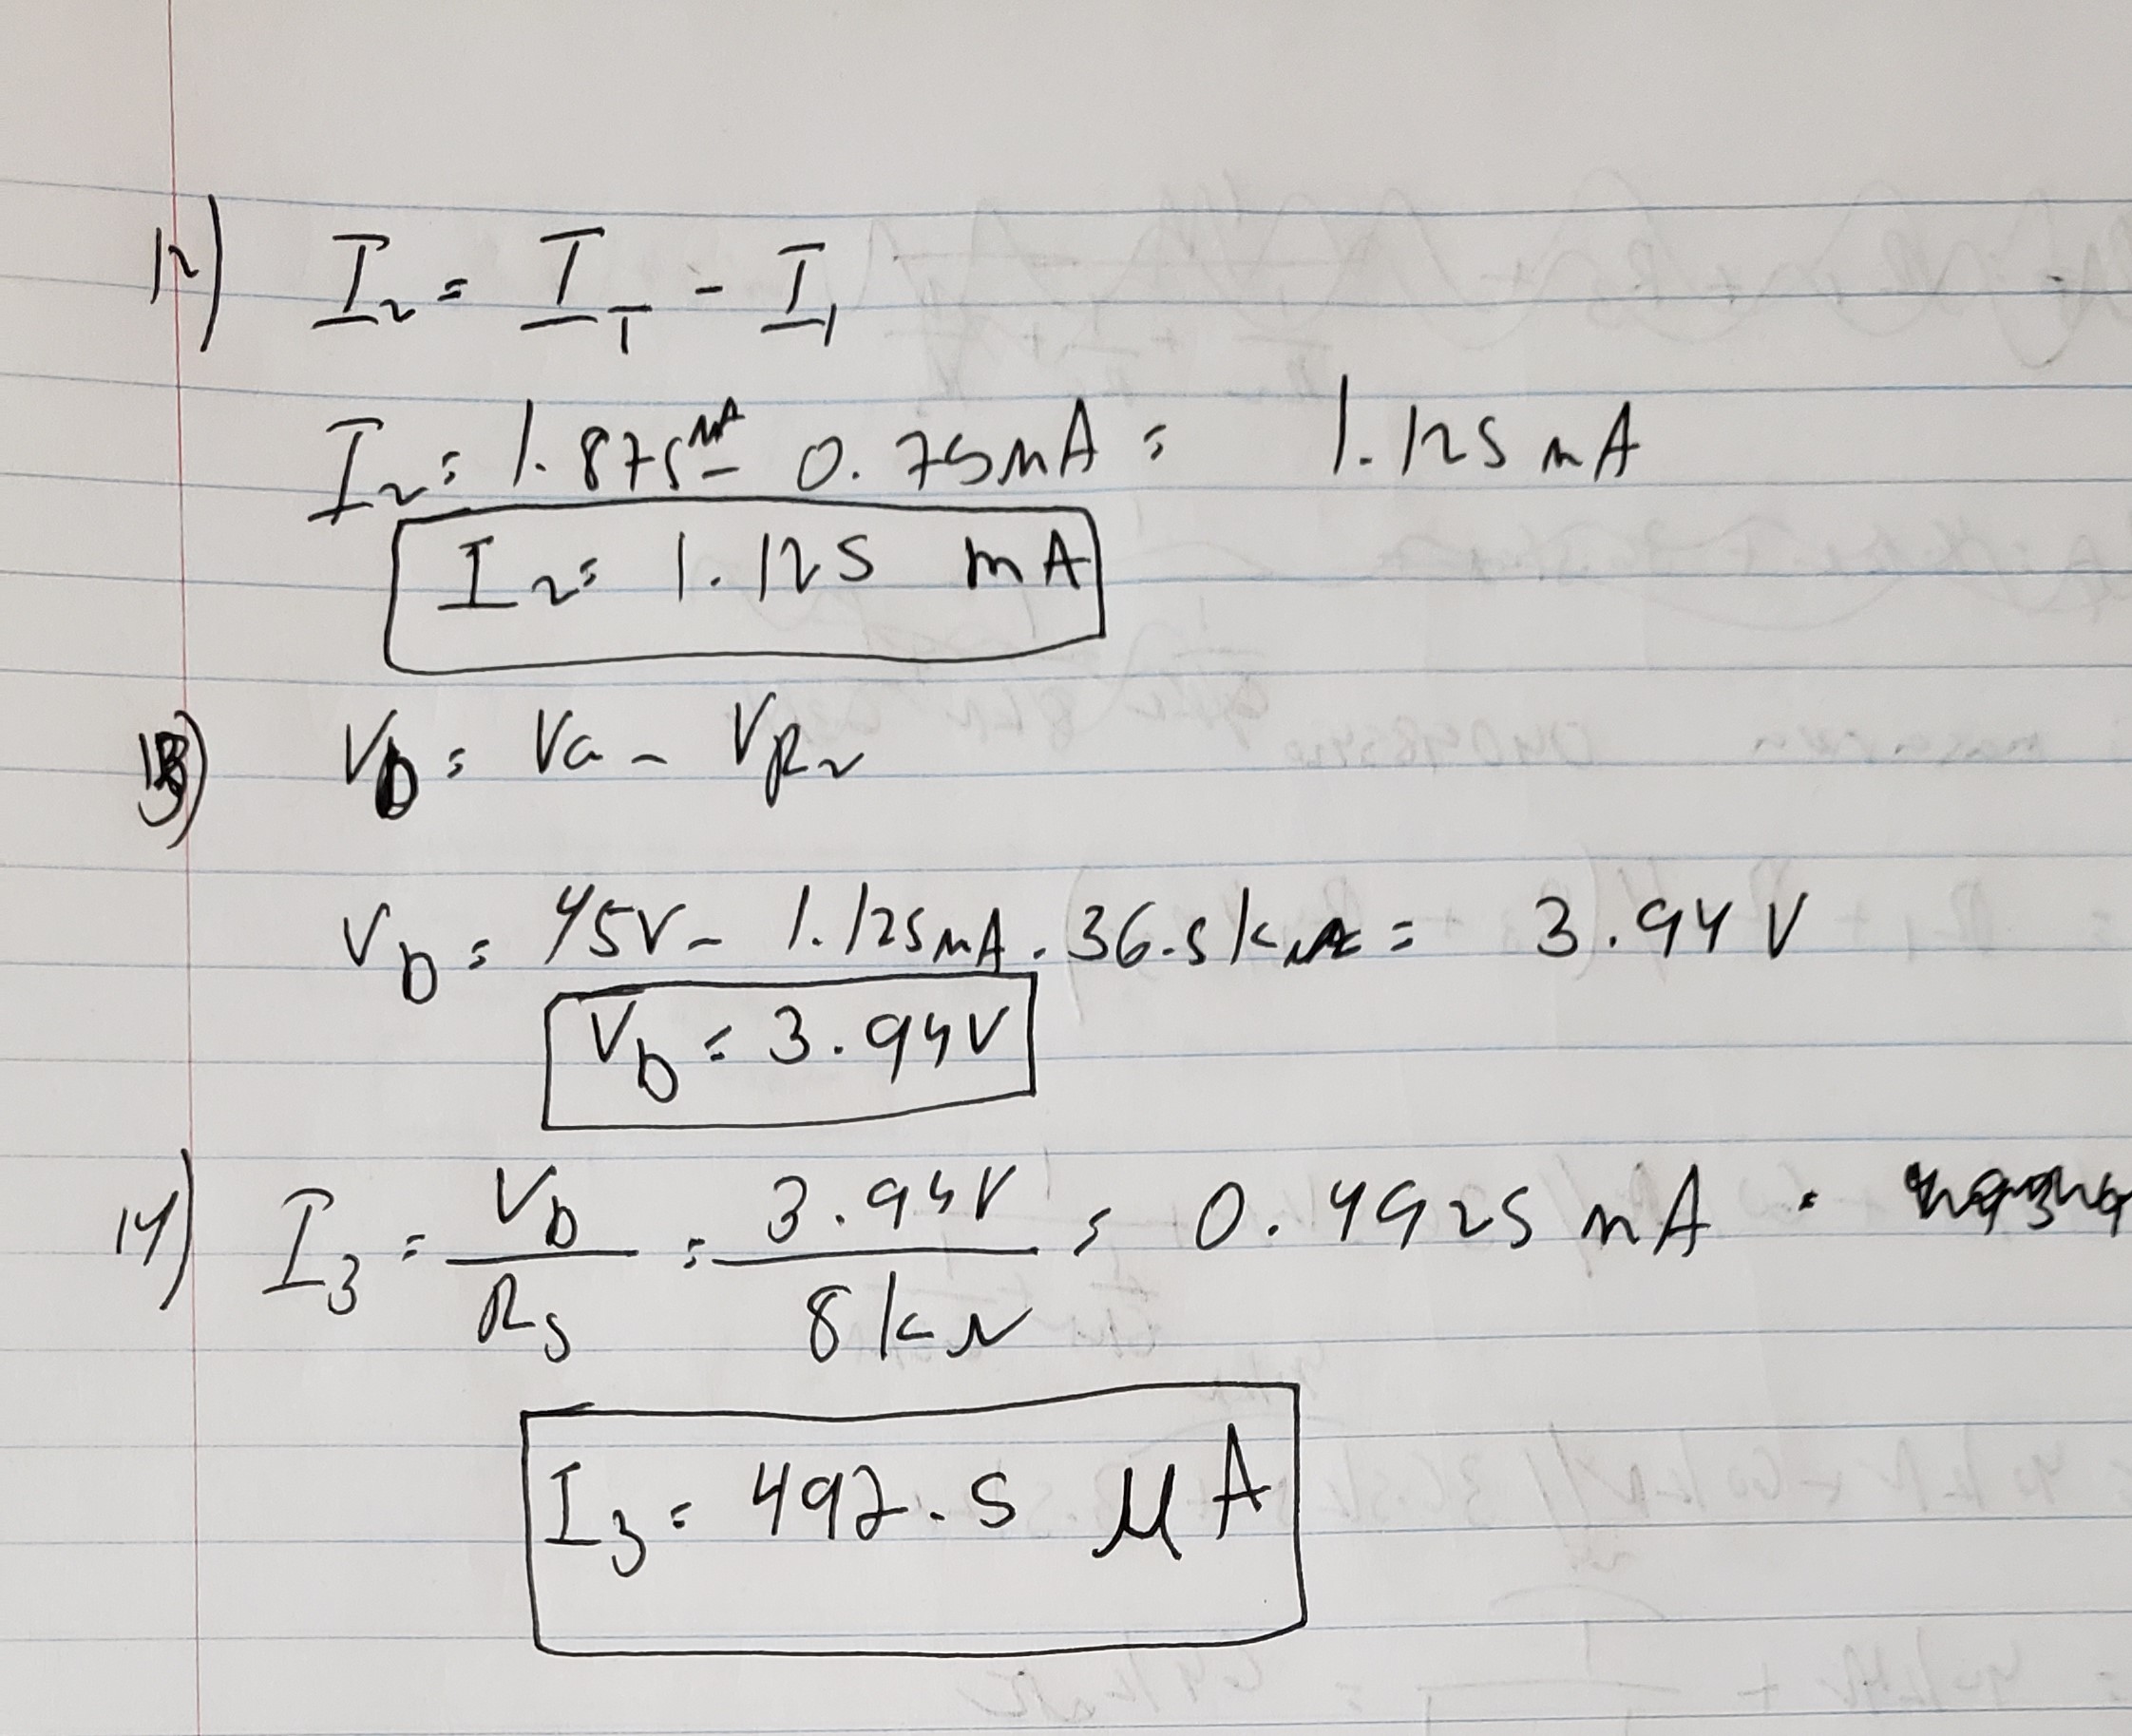 12) I₂ = I_T - I₁
I₂ = 1.875mA - 0.75mA = 1.125 mA
I₂ = 1.125 mA
13) V_b = Va - V_R₂
V_b = 45V - 1.125mA . 36.5kΩ = 3.94V
V_b = 3.94V
14) I₃ = V_b / R₅ = 3.94V / 8kΩ = 0.4925 mA
I₃ = 492.5 μA